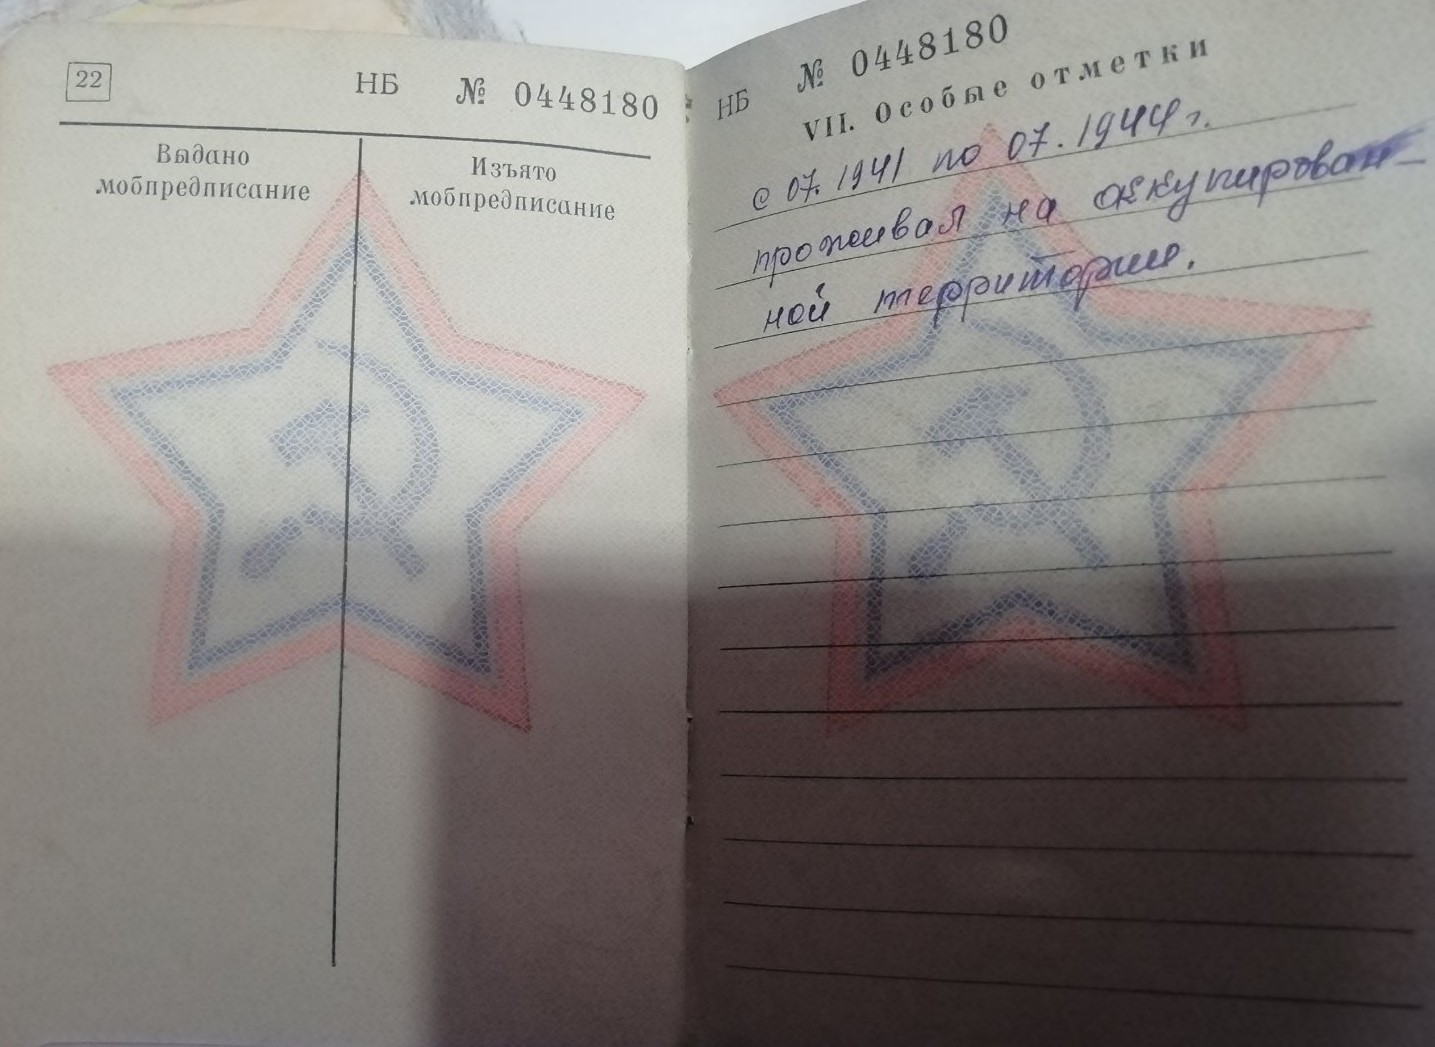 22
НБ № 0448180
Выдано
мобпредписание
Изъято
мобпредписание
НБ № 0448180
VII. Особые отметки
с 07. 1941 по 07. 1944 г.
проживал на оккупирован-
ной территории.